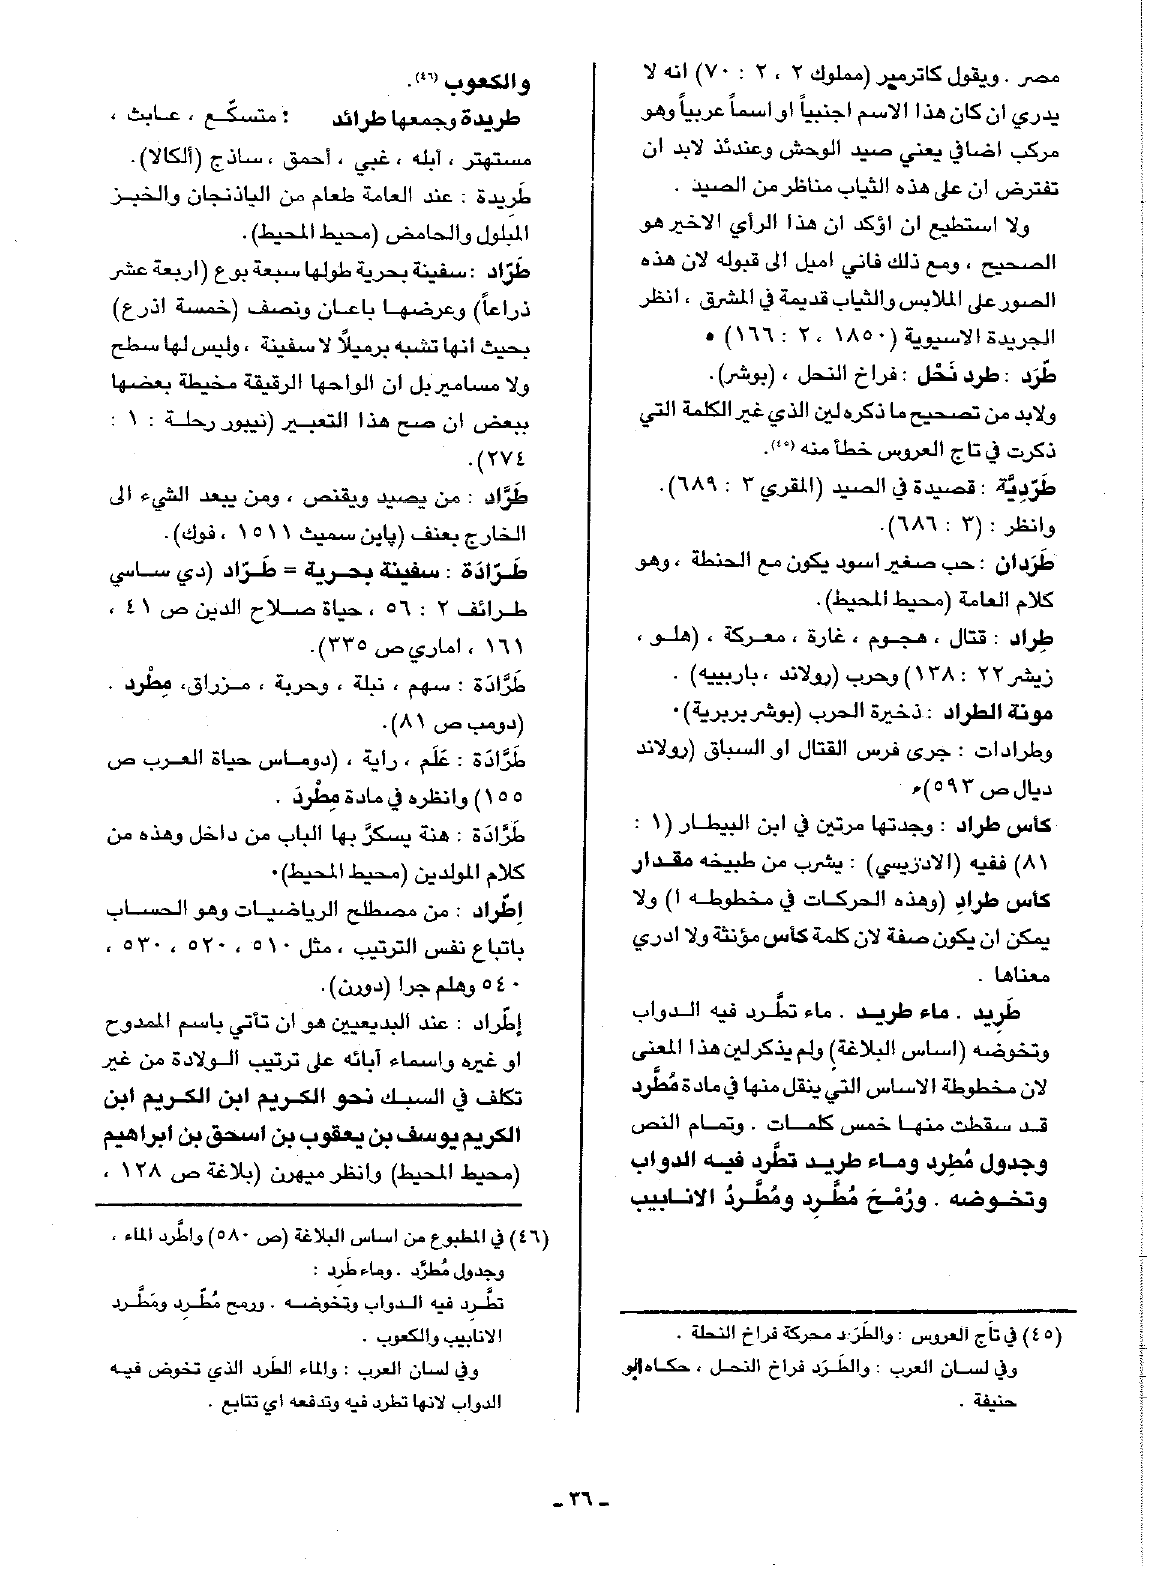 مصر . ويقول كاترمير (مملوك ٢ ، ٢ : ٧٠) انه لا
يدري ان كان هذا الاسم اجنبياً او اسماً عربياً وهو
مركب اضافي يعني صيد الوحش وعندئذ لابد ان
تفترض ان على هذه الثياب مناظر من الصيد .
ولا استطيع ان اؤكد ان هذا الرأي الاخير هو
الصحيح ، ومع ذلك فاني اميل الى قبوله لان هذه
الصور على الملابس والثياب قديمة في المشرق ، انظر
الجريدة الاسيوية (١٨٥٠ ، ٢ : ١٦٦) •
طَرَد : طرد نَحْل : فراخ النحل ، (بوشر).
ولابد من تصحيح ما ذكره لين الذي غير الكلمة التي
ذكرت في تاج العروس خطأ منه (٤٥).
طَرَدِيَّة : قصيدة في الصيد (المقري ٣ : ٦٨٩).
وانظر : (٣ : ٦٨٦).
طَرَدان : حب صغير اسود يكون مع الحنطة ، وهو
كلام العامة (محيط المحيط).
طِراد : قتال ، هجوم ، غارة ، معركة ، (هلو ،
زيشر ٢٢ : ١٣٨) وحرب (رولاند ، باربييه) .
مونة الطراد : ذخيرة الحرب (بوشر بربرية)·
وطرادات : جرى فرس القتال او السباق (رولاند
ديال ص ٥٩٣)،
كأس طراد : وجدتها مرتين في ابن البيطار (١ :
٨١) ففيه (الادريسي) : يشرب من طبيخه مقدار
كأس طرادِ (وهذه الحركات في مخطوطه أ) ولا
يمكن ان يكون صفة لان كلمة كأس مؤنثة ولا ادري
معناها .
طَرِيد . ماء طريد . ماء تطَّرد فيه الدواب
وتخوضه (اساس البلاغة) ولم يذكر لين هذا المعنى
لان مخطوطة الاساس التي ينقل منها في مادة مُطَّرِد
قد سقطت منها خمس كلمات . وتمام النص
وجدول مُطَّرِد وماء طريد تطَّرد فيه الدواب
وتخوضه . ورُمْحَ مُطَّرِد ومُطَّرِدُ الانابيب
(٤٥) في تاج العروس : والطَرَد محركة فراخ النحلة .
وفي لسان العرب : والطَرَد فراخ النحل ، حكاه ابو
حنيفة .
والكعوب (٤٦).
طريدة وجمعها طرائد : متسكّع ، عابث ،
مستهتر ، أبله ، غبي ، أحمق ، ساذج (ألكالا).
طَرِيدة : عند العامة طعام من الباذنجان والخبز
المبلول والحامض (محيط المحيط).
طَرّاد : سفينة بحرية طولها سبعة بوع (اربعة عشر
ذراعاً) وعرضها باعان ونصف (خمسة اذرع)
بحيث انها تشبه برميلاً لا سفينة ، وليس لها سطح
ولا مسامير بل ان الواحها الرقيقة مخيطة بعضها
ببعض ان صح هذا التعبير (نيبور رحلة : ١ :
٢٧٤).
طَرَّاد : من يصيد ويقنص ، ومن يبعد الشيء الى
الخارج بعنف (پاين سميث ١٥١١ ، فوك).
طَرّادَة : سفينة بحرية = طَرّاد (دي ساسي
طرائف ٢ : ٥٦ ، حياة صلاح الدين ص ٤١ ،
١٦١ ، اماري ص ٣٣٥).
طَرَّادَة : سهم ، نبلة ، وحربة ، مزراق، مِطْرد .
(دومب ص ٨١).
طَرَّادَة : عَلَم ، راية ، (دوماس حياة العرب ص
١٥٥) وانظره في مادة مِطْرَد .
طَرَّادَة : هنة يسكرَّ بها الباب من داخل وهذه من
كلام المولدين (محيط المحيط)·
اِطّراد : من مصطلح الرياضيات وهو الحساب
باتباع نفس الترتيب ، مثل ٥١٠ ، ٥٢٠ ، ٥٣٠ ،
٥٤٠ وهلم جرا (دورن).
إطّراد : عند البديعيين هو ان تأتي باسم الممدوح
او غيره واسماء آبائه على ترتيب الولادة من غير
تكلف في السبك نحو الكريم ابن الكريم ابن
الكريم يوسف بن يعقوب بن اسحق بن ابراهيم
(محيط المحيط) وانظر ميهرن (بلاغة ص ١٢٨ ،
(٤٦) في المطبوع من اساس البلاغة (ص ٥٨٠) واطَّرد الماء ،
وجدول مُطرَّد . وماء طَرِد :
تطَّرد فيه الدواب وتخوضه . ورمح مُطَّرد ومُطَّرد
الانابيب والكعوب .
وفي لسان العرب : والماء الطَرِد الذي تخوض فيه
الدواب لانها تطرد فيه وتدفعه اي تتابع .
ـ ٣٦ ـ